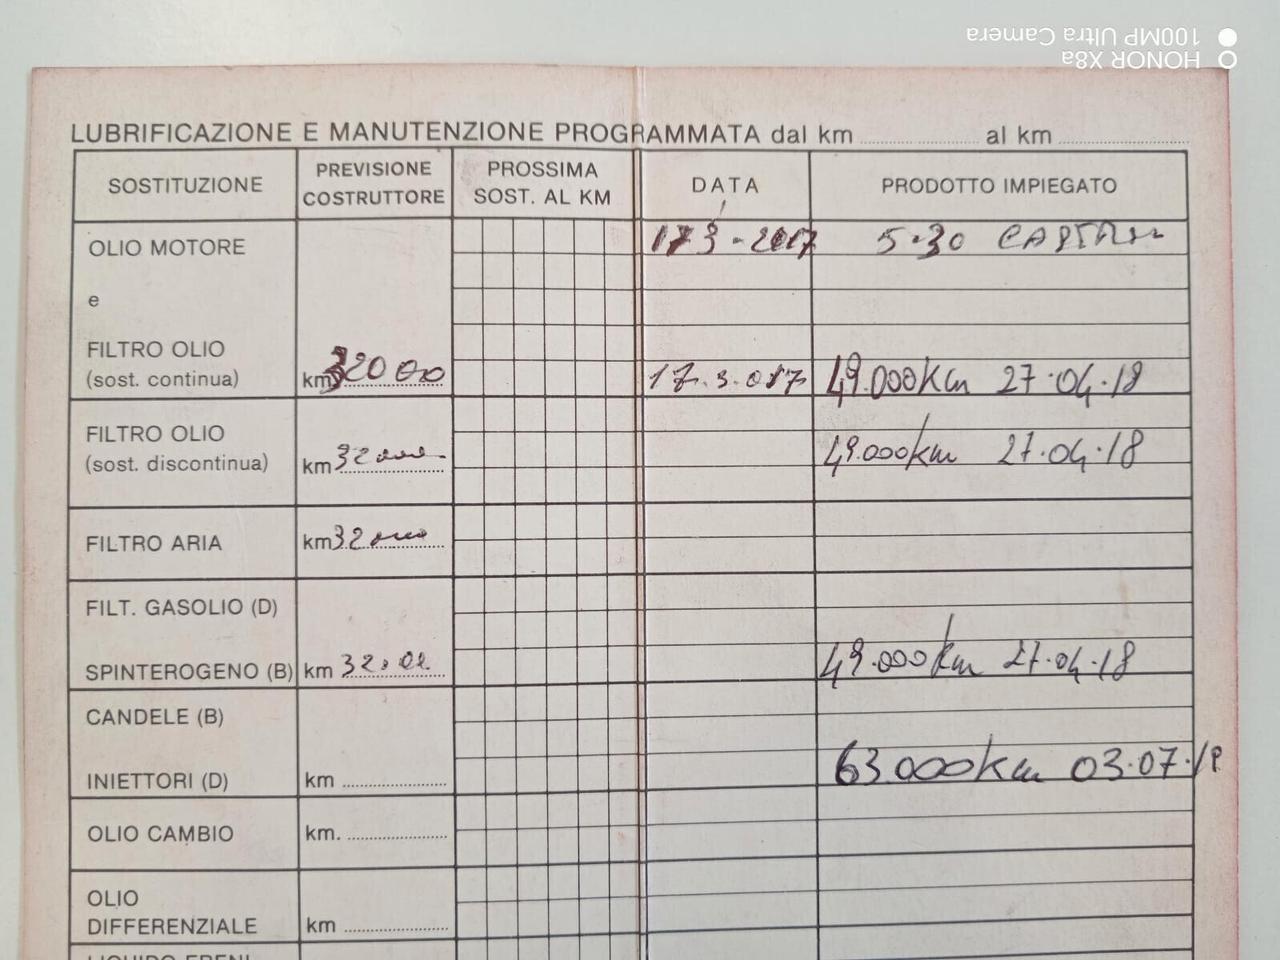 HONOR X8a
100MP Ultra Camera
LUBRIFICAZIONE E MANUTENZIONE PROGRAMMATA dal km ........ al km ........
SOSTITUZIONE PREVISIONE COSTRUTTORE PROSSIMA SOST. AL KM DATA PRODOTTO IMPIEGATO
OLIO MOTORE 173-2017 5-30
e
FILTRO OLIO
(sost. continua) km 32000 17.3.017 49.000km 27.04.18
FILTRO OLIO
(sost. discontinua) km 32000 49.000km 27.04.18
FILTRO ARIA km 32000
FILT. GASOLIO (D)
SPINTEROGENO (B) km 49.000km 27.04.18
CANDELE (B)
INIETTORI (D) km ........ 63.000km 03.07.
OLIO CAMBIO km. ........
OLIO
DIFFERENZIALE km ........
LIQUIDO FRENI